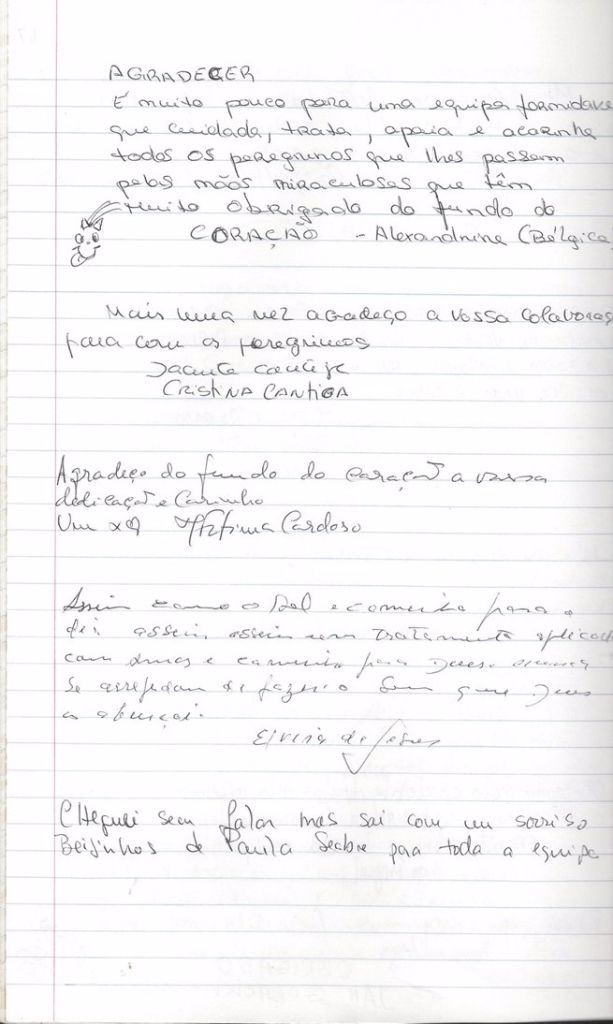 AGRADECER
É muito pouco para uma equipa formidave
que cuidada, trata, apoia e acarinha
todos os peregrinos que lhes passam
pelas mãos miraculosas que têm
Muito Obrigado do fundo do
CORAÇÃO - Alexandrina (Bélgica)
Mais uma vez agradeço a vossa colaboraç
para com os peregrinos
CRISTINA CANTIGA
Agradeço do fundo do coração a vossa
dedicação e Carinho
Um Fátima Cardoso
Assim como o Sol é para o
assim, assim um tratamento aplicado
com e para Deus
Se de fazer o Sem que Deus
o abençoi.
Elvira de Jesus
CHeguei sem falar mas sai com um sorriso
Beijinhos de Paula para toda a equipa